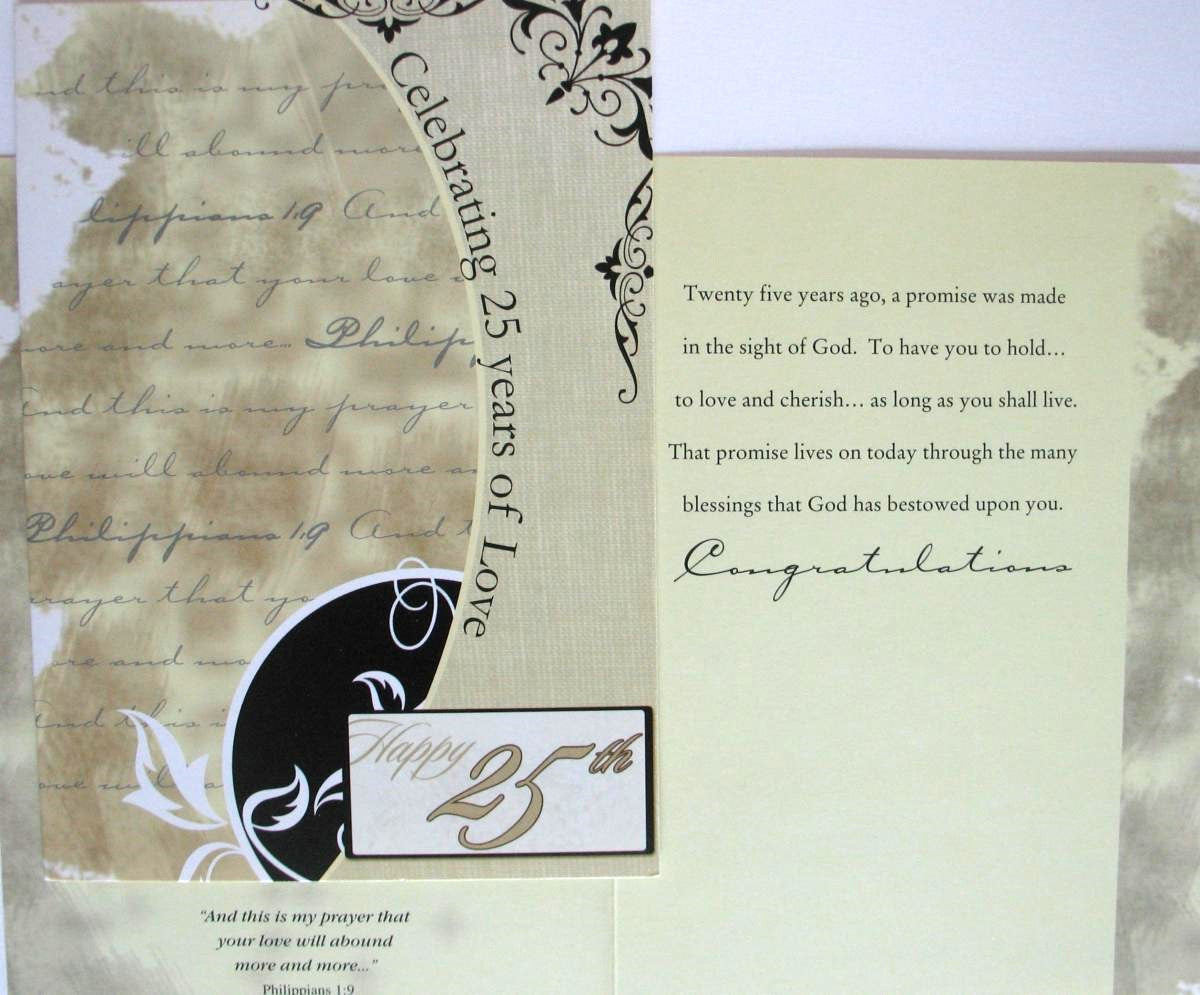 nd this is my pr
ill abound more
lippians 1:9 And
ayer that your love
ore and more... Philipp
End this is my prayer
ove will abound more a
Philippians 1:9 And t
rayer that yo
ore and mo
End this i
ove wil a
Celebrating 25 years of Love
Happy 25th
Twenty five years ago, a promise was made
in the sight of God. To have you to hold...
to love and cherish... as long as you shall live.
That promise lives on today through the many
blessings that God has bestowed upon you.
Congratulations
"And this is my prayer that
your love will abound
more and more..."
Philippians 1:9